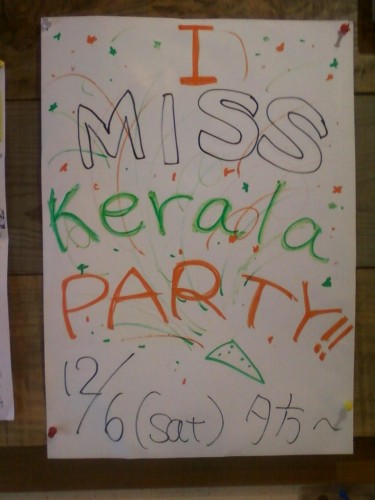 I
MISS
Kerala
PARTY!!
12/6 (sat) 夕方~